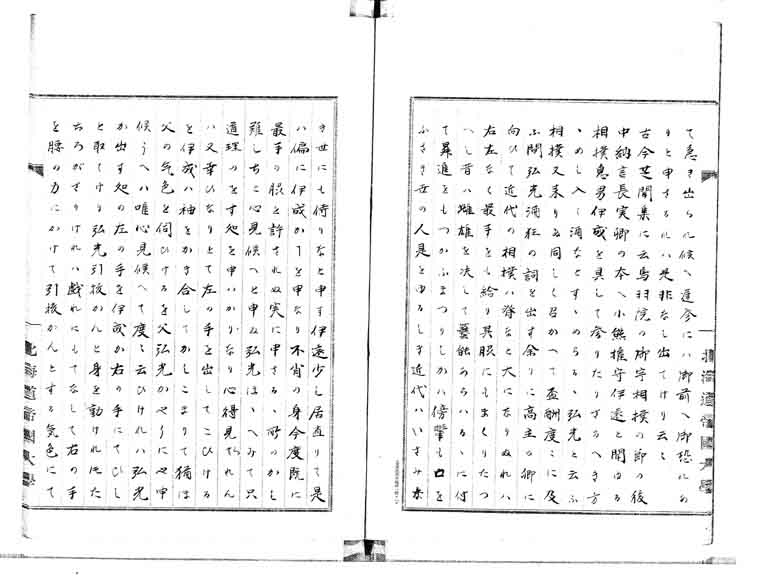 て急き出られ候へ遅参にハ御前へ御恐れあ
りと申さるれハ是非なく出てけり云〻
古今著聞集に云鳥羽院の御宇相撲の節の後
中納言長実卿の本へ小熊権守伊遠と聞ゆる
相撲息男伊成を具して参りたりさるへき方
へめし入て酒なとすゝめらる弘光と云ふ
相撲又来りぬ同しく召かへて盃酬度〻に及
ふ間弘光酒狂の詞を出す余りに高主の卿に
向ひて近代の相撲ハ脊なと大になりぬれハ
右左なく最手をも給り其眼にもまくりたつ
へし昔ハ雌雄を決して芸能あらハるゝに付
て昇進をもつかふまつりしかハ傍輩も口を
ふさき世の人是をゆるしき近代ハいさみ
き世にも侍りなと申す伊遠少し居直りて是
ハ偏に伊成か事を申なり不肖の身今度既に
最手の眼と許されぬ実に申さるゝ所のかし
雖しちこ心見候へと申ぬ弘光ほゝへみて只
道理のをす処を申ハかりなり心得見られん
ハ又幸ひなりとて左の手を出してこひける
と伊成ハ袖をかき合してかしこまりて猶ほ
父の気色を伺ひけるを父弘光かくしに申
候うへハ唯心見候へて度〻云ひけれハ弘光
か出す処の左の手を伊成か右の手にてひし
と取てけり弘光引抜かんと身を動けれ共た
ちろかさりけれハ戯れにもてなして右の手
を腰の力にかけて引抜かんとする気色にて
北海道帝国大学
北海道帝國大學